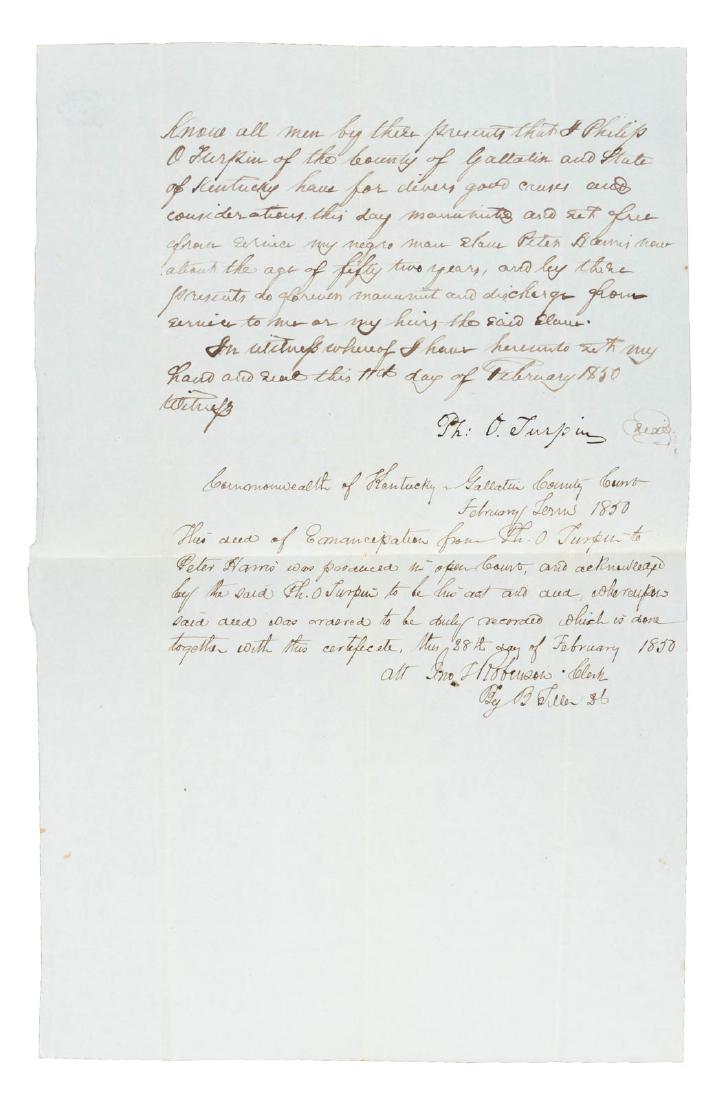 Know all men by these presents that I Philip
O Turpin of the County of Gallatin and State
of Kentucky have for divers good causes and
considerations this day manumitted and set free
from service my negro man slave Peter Harris now
about the age of fifty two years, and by these
presents do forever manumit and discharge from
service to me or my heirs the said slave.
In witness whereof I have hereunto set my
hand and seal this 11th day of February 1850
Witness
Ph: O. Turpin seal
Commonwealth of Kentucky - Gallatin County Court
February Term 1850
This deed of Emancipation from Ph. O Turpin to
Peter Harris was produced in open Court, and acknowledged
by the said Ph. O Turpin to be his act and deed, whereupon
said deed was ordered to be duly recorded which is done
together with this certificate, this 28th day of February 1850
Att Jno J Robinson Clerk
By B Tiller